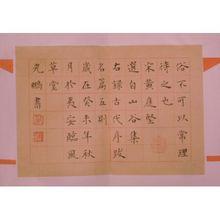 俗不可以常理
待之也
宋黄庭堅
選自山谷集
右録古代序跋
名篇五則
歲在癸未年秋
月於夷安臨風
草堂
光鵬書